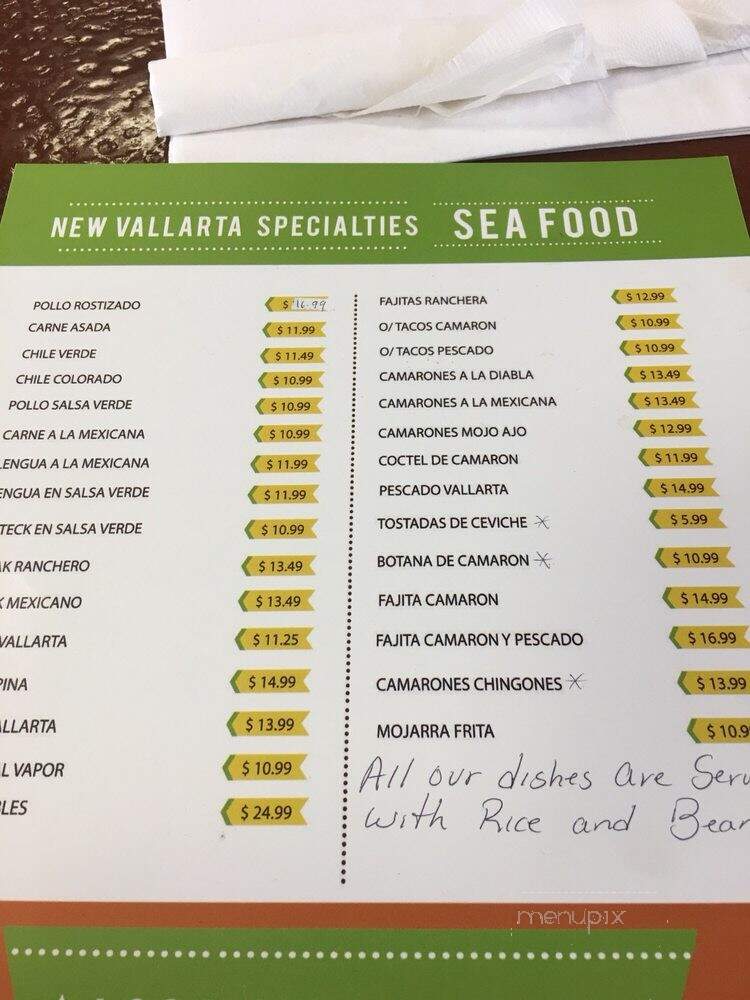 NEW VALLARTA SPECIALTIES
POLLO ROSTIZADO $ 16.99
CARNE ASADA $ 11.99
CHILE VERDE $ 11.49
CHILE COLORADO $ 10.99
POLLO SALSA VERDE $ 10.99
CARNE A LA MEXICANA $ 10.99
LENGUA A LA MEXICANA $ 11.99
ENGUA EN SALSA VERDE $ 11.99
TECK EN SALSA VERDE $ 10.99
K RANCHERO $ 13.49
K MEXICANO $ 13.49
VALLARTA $ 11.25
PINA $ 14.99
ALLARTA $ 13.99
L VAPOR $ 10.99
LES $ 24.99
SEA FOOD
FAJITAS RANCHERA $ 12.99
O/ TACOS CAMARON $ 10.99
O/ TACOS PESCADO $ 10.99
CAMARONES A LA DIABLA $ 13.49
CAMARONES A LA MEXICANA $ 13.49
CAMARONES MOJO AJO $ 12.99
COCTEL DE CAMARON $ 11.99
PESCADO VALLARTA $ 14.99
TOSTADAS DE CEVICHE * $ 5.99
BOTANA DE CAMARON * $ 10.99
FAJITA CAMARON $ 14.99
FAJITA CAMARON Y PESCADO $ 16.99
CAMARONES CHINGONES * $ 13.99
MOJARRA FRITA $ 10.9
All our dishes are Serv
with Rice and Bean
menupix